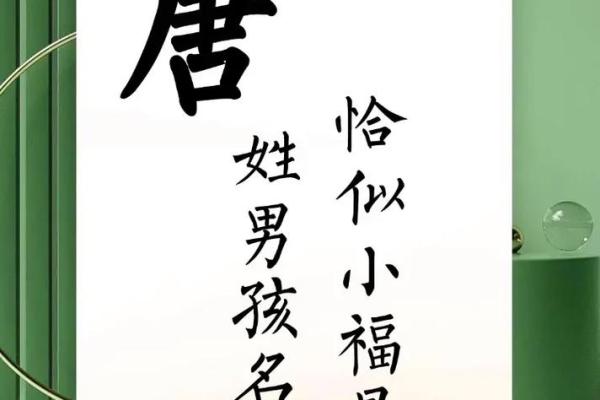 唐
姓男孩名
恰似小福